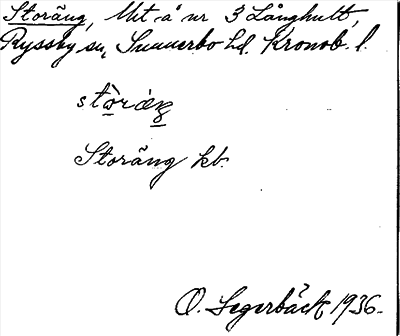 Storäng, Utt. å nr 3 Långhult,
Ryssby sn, Sunnerbo hd. Kronob. l.
stòràŋ
Storäng kb.
O. Segerbäck 1936.